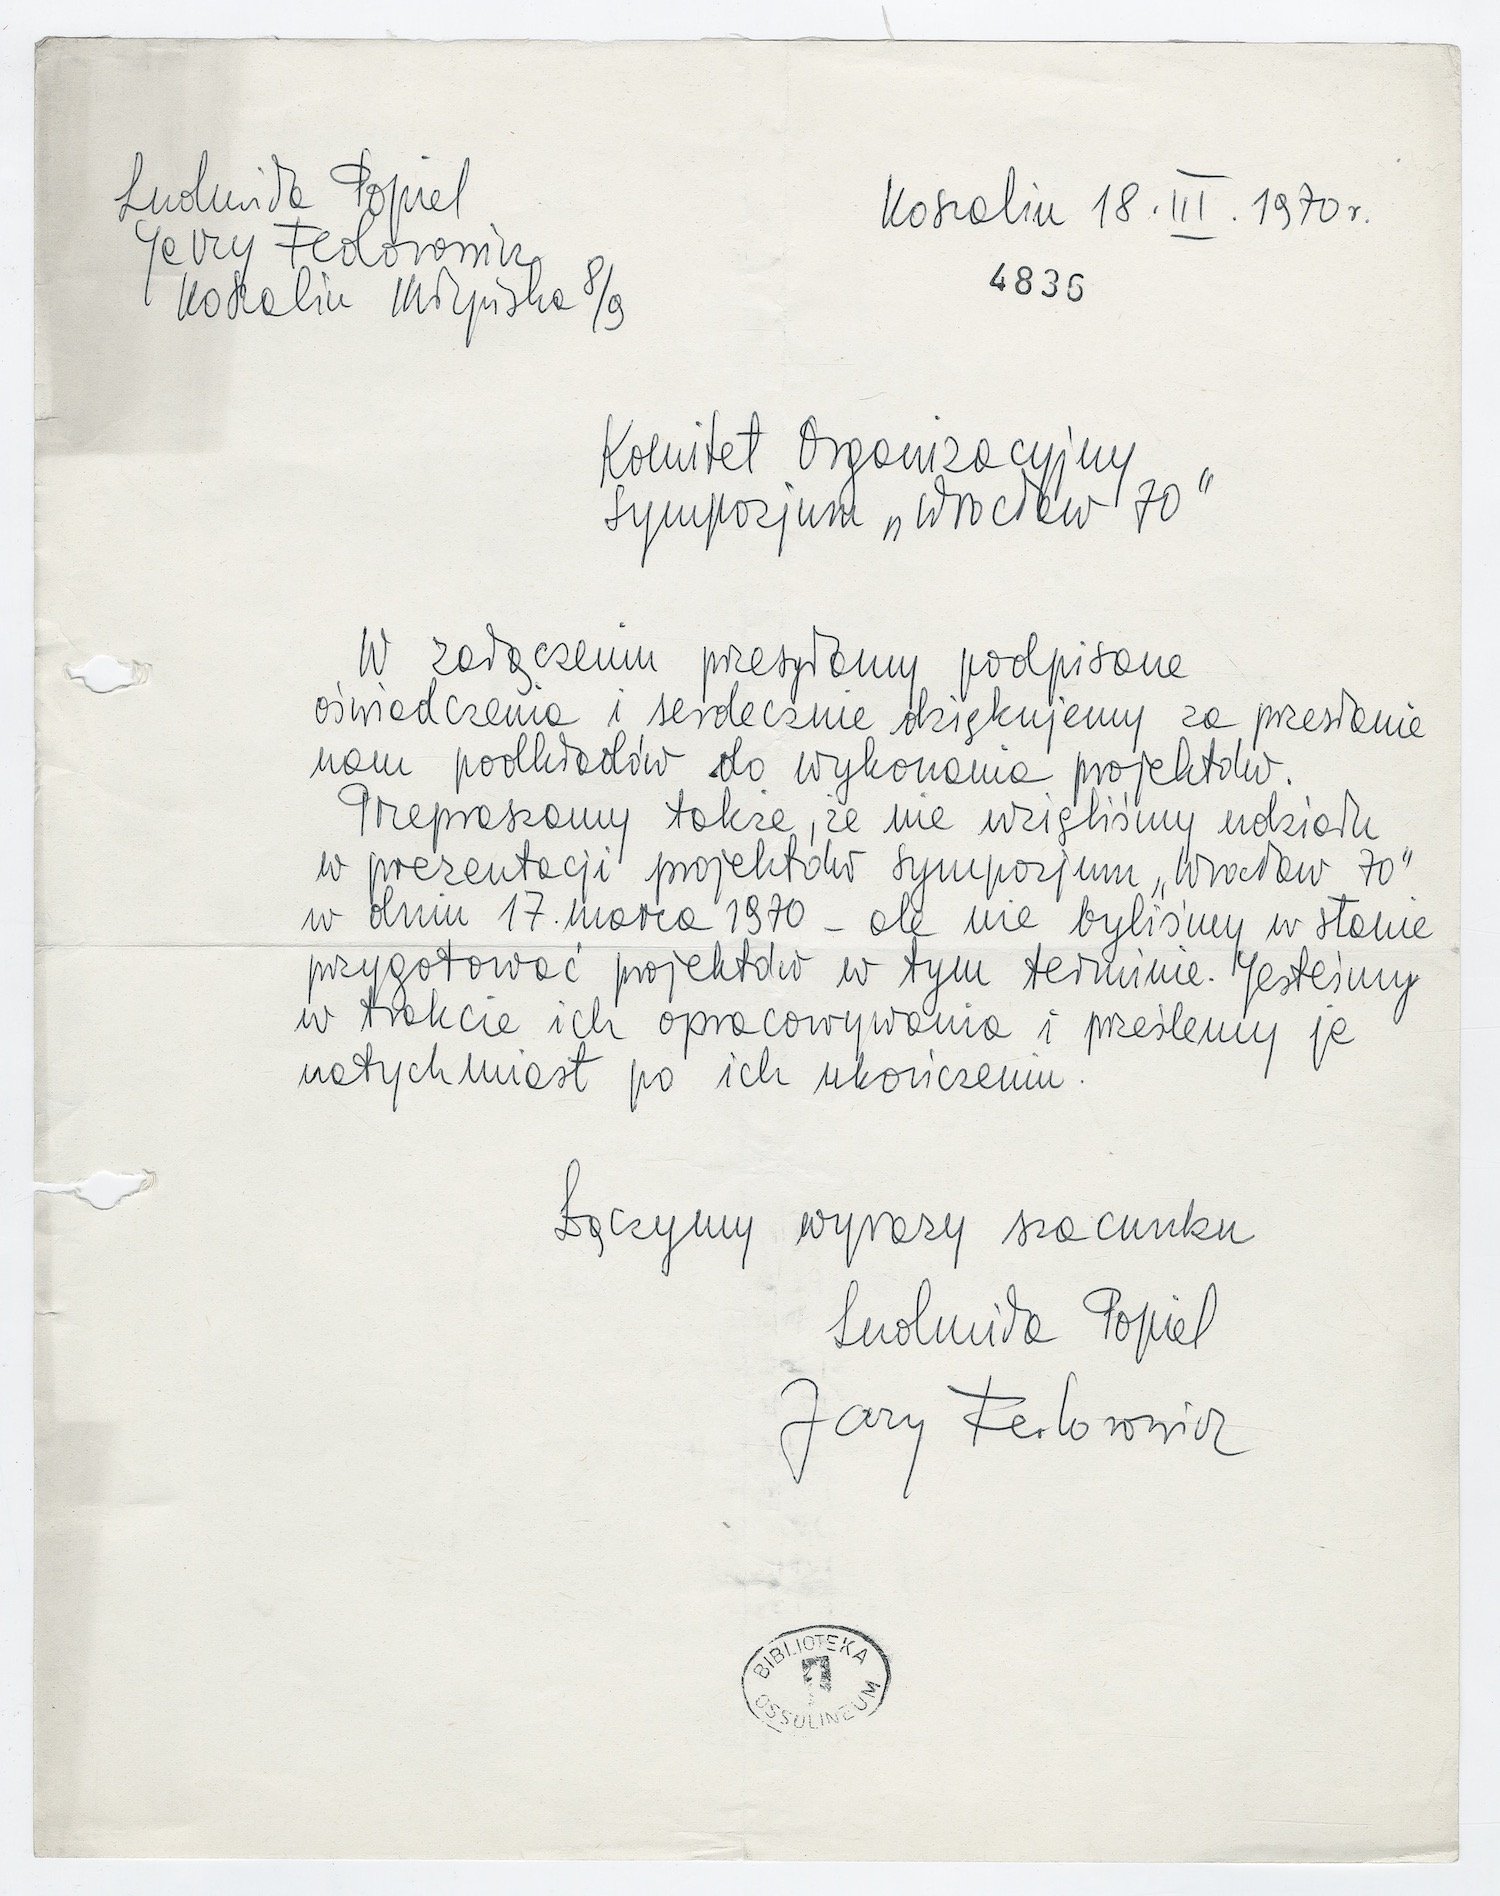 Ludmiła Popiel
Jerzy Fedorowicz
Koszalin 8/9
Koszalin 18.III.1970r.
4836
Komitet Organizacyjny
Sympozjum „Wrocław 70"
W załączeniu przesyłamy podpisane
oświadczenia i serdecznie dziękujemy za przesłanie
nam podkładów do wykonania projektów.
Przepraszamy także, że nie wzięliśmy udziału
w prezentacji projektów Sympozjum „Wrocław 70"
w dniu 17. marca 1970 – ale nie byliśmy w stanie
przygotować projektów w tym terminie. Jesteśmy
w trakcie ich opracowywania i prześlemy je
natychmiast po ich ukończeniu.
Łączymy wyrazy szacunku
Ludmiła Popiel
Jerzy Fedorowicz
BIBLIOTEKA
OSSOLINEUM